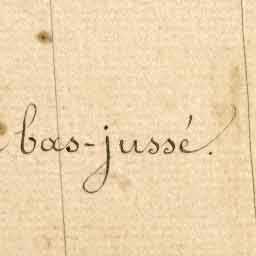 bas-jussé.